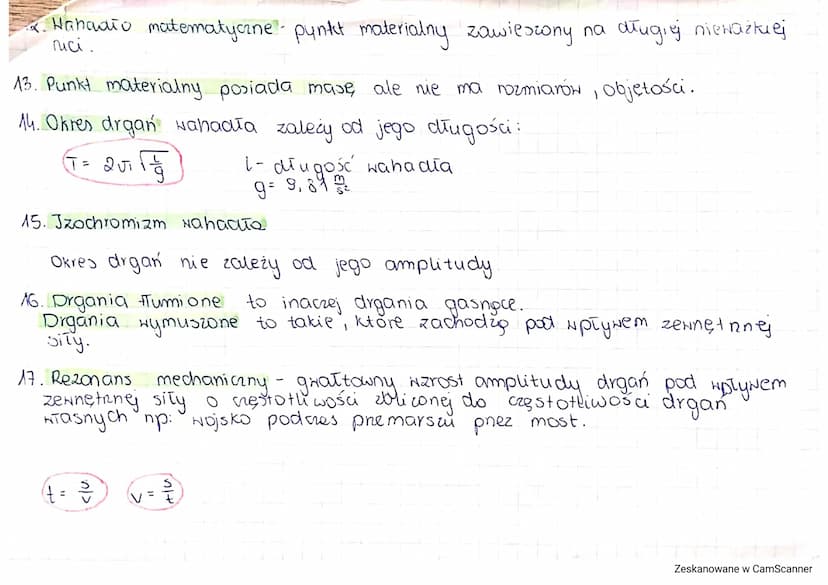 12. Wahadło matematyczne - punkt materialny zawieszony na długiej nieważkiej
nici.
13. Punkt materialny posiada masę ale nie ma rozmiarów, objętości.
14. Okres drgań wahadła zależy od jego długości:
T = 2π√(l/g)
l - długość wahadła
g = 9,81 m/s²
15. Izochromizm wahadła
Okres drgań nie zależy od jego amplitudy
16. Drgania tłumione to inaczej drgania gasnące.
Drgania wymuszone to takie, które zachodzą pod wpływem zewnętrznej
siły.
17. Rezonans mechaniczny - gwałtowny wzrost amplitudy drgań pod wpływem
zewnętrznej siły o częstotliwości zbliżonej do częstotliwości drgań
własnych np: wojsko podczas przemarszu przez most.
t = s/v v = s/t
Zeskanowane w CamScanner